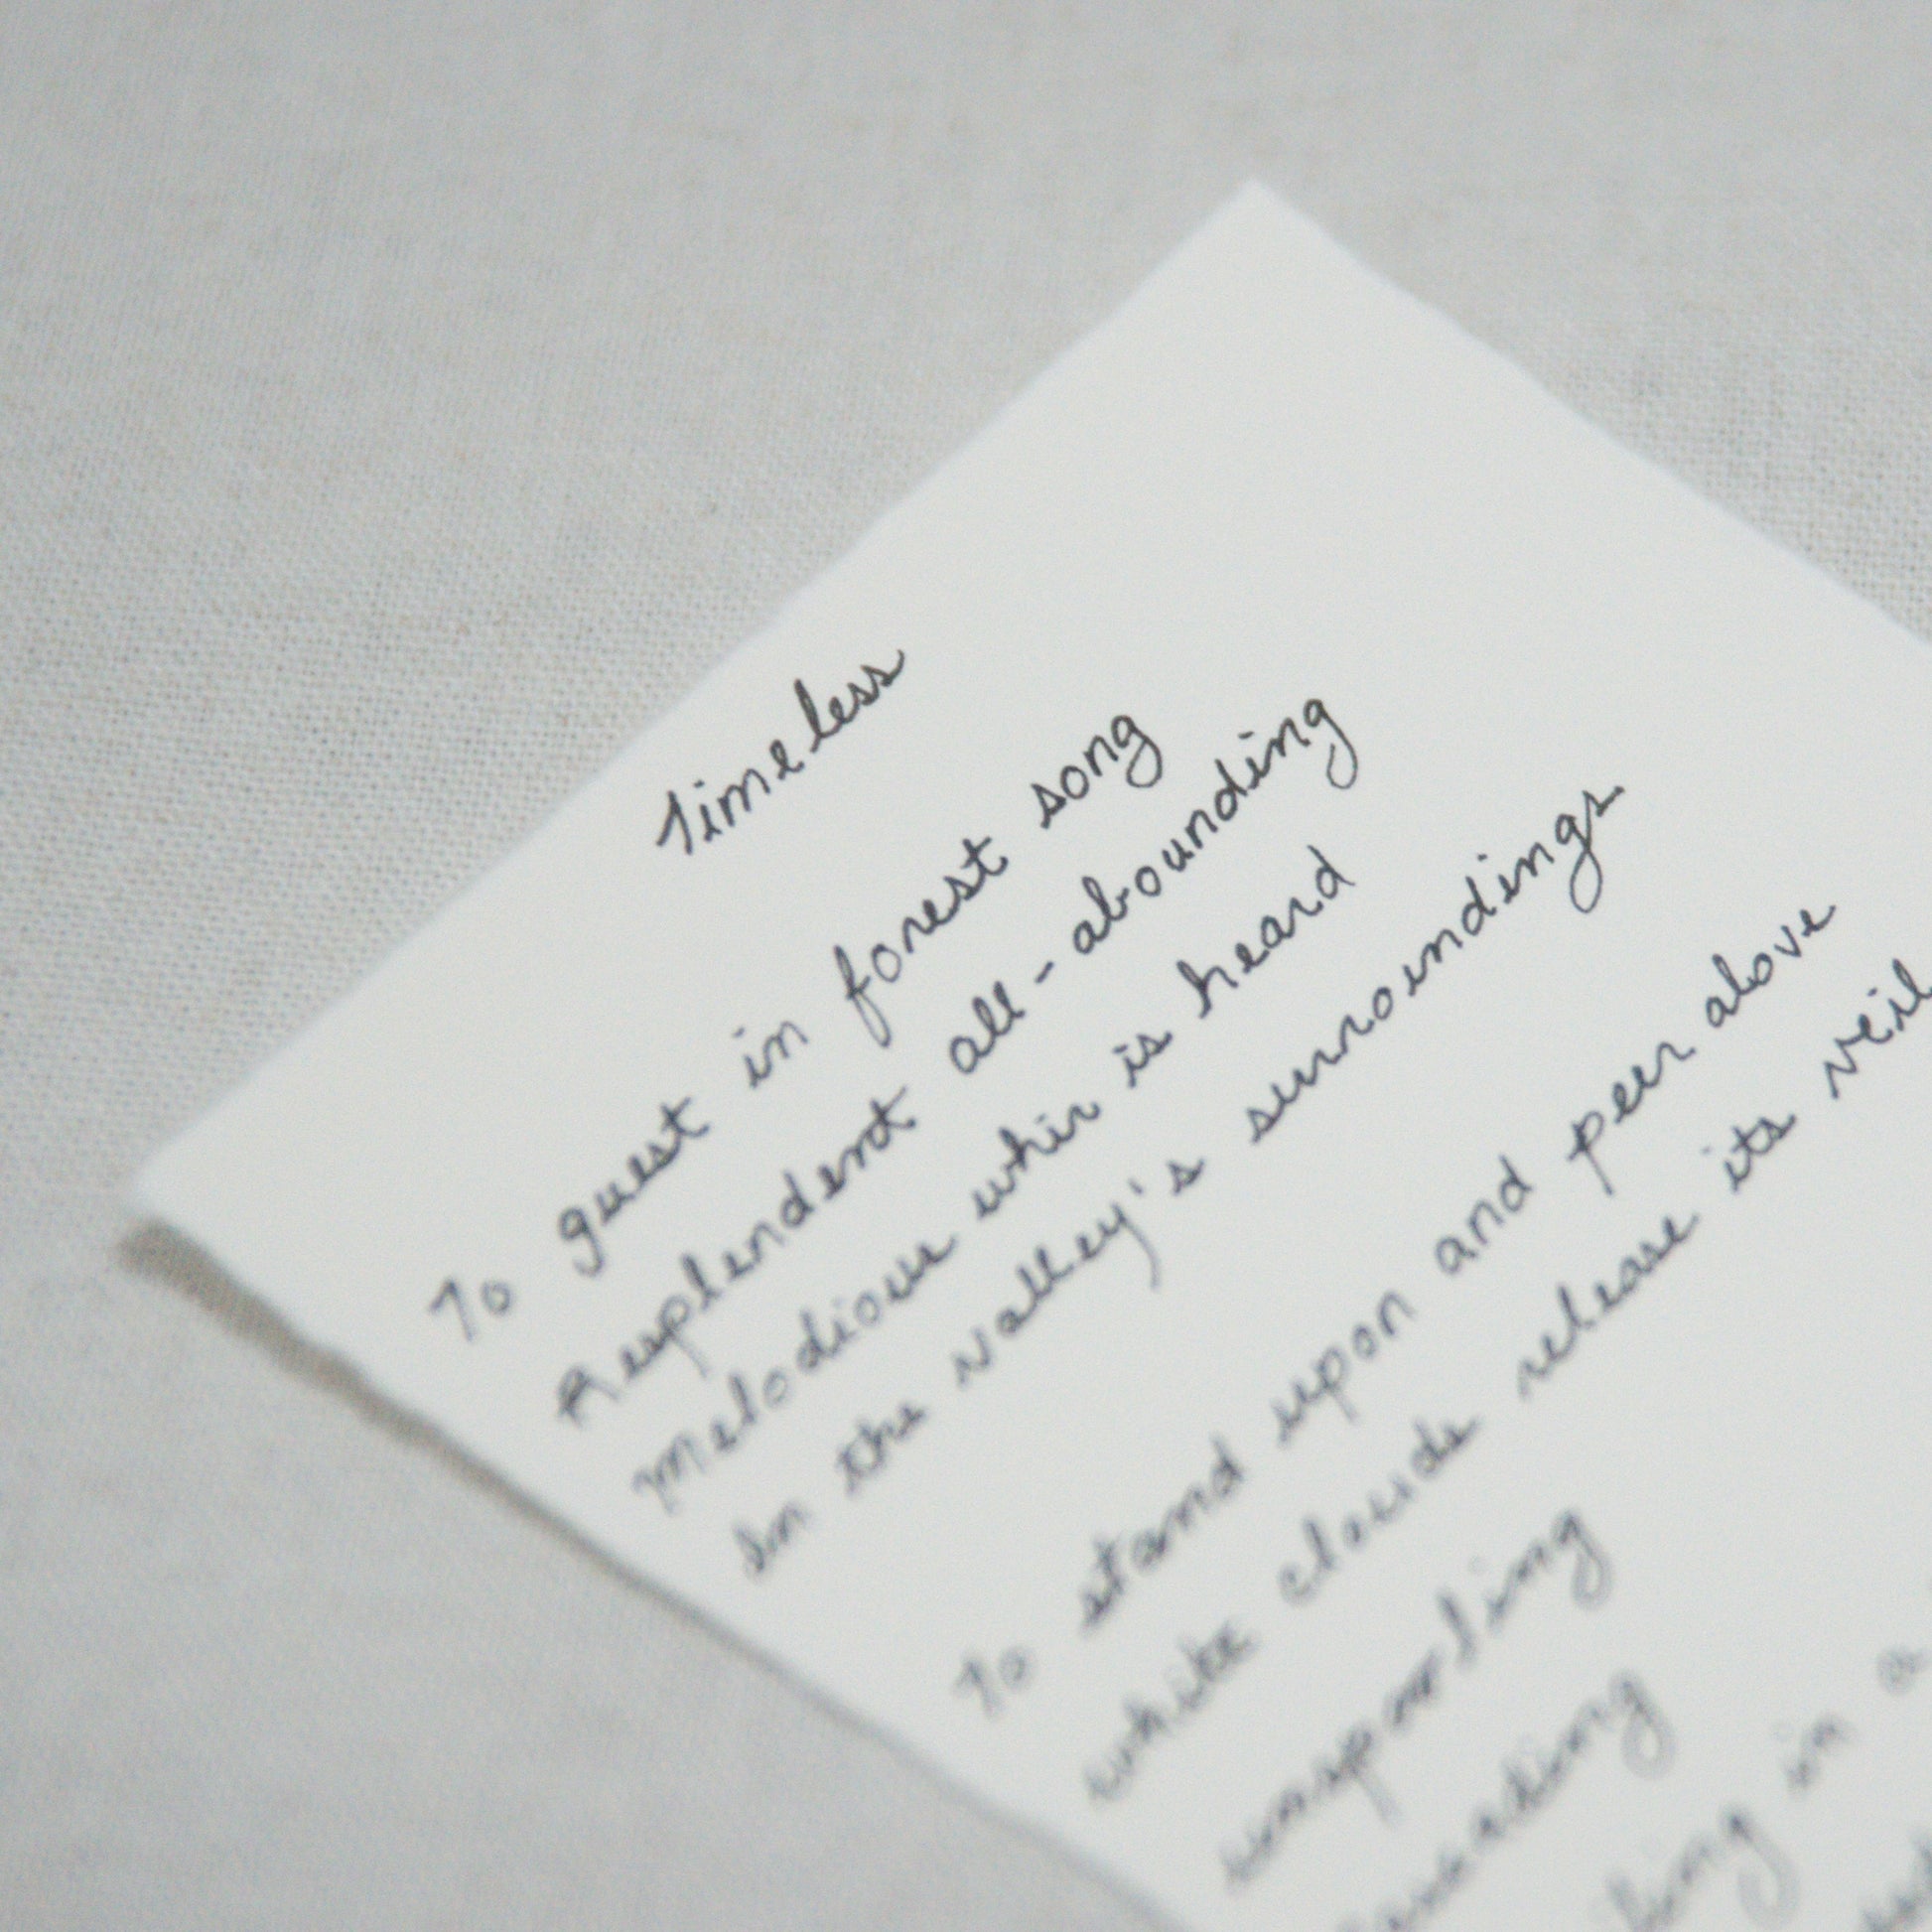 Timeless
To guest in forest song
Resplendent all-abounding
Melodious whir is heard
In the valley's surroundings
To stand upon and peer above
white clouds release its veil
in a